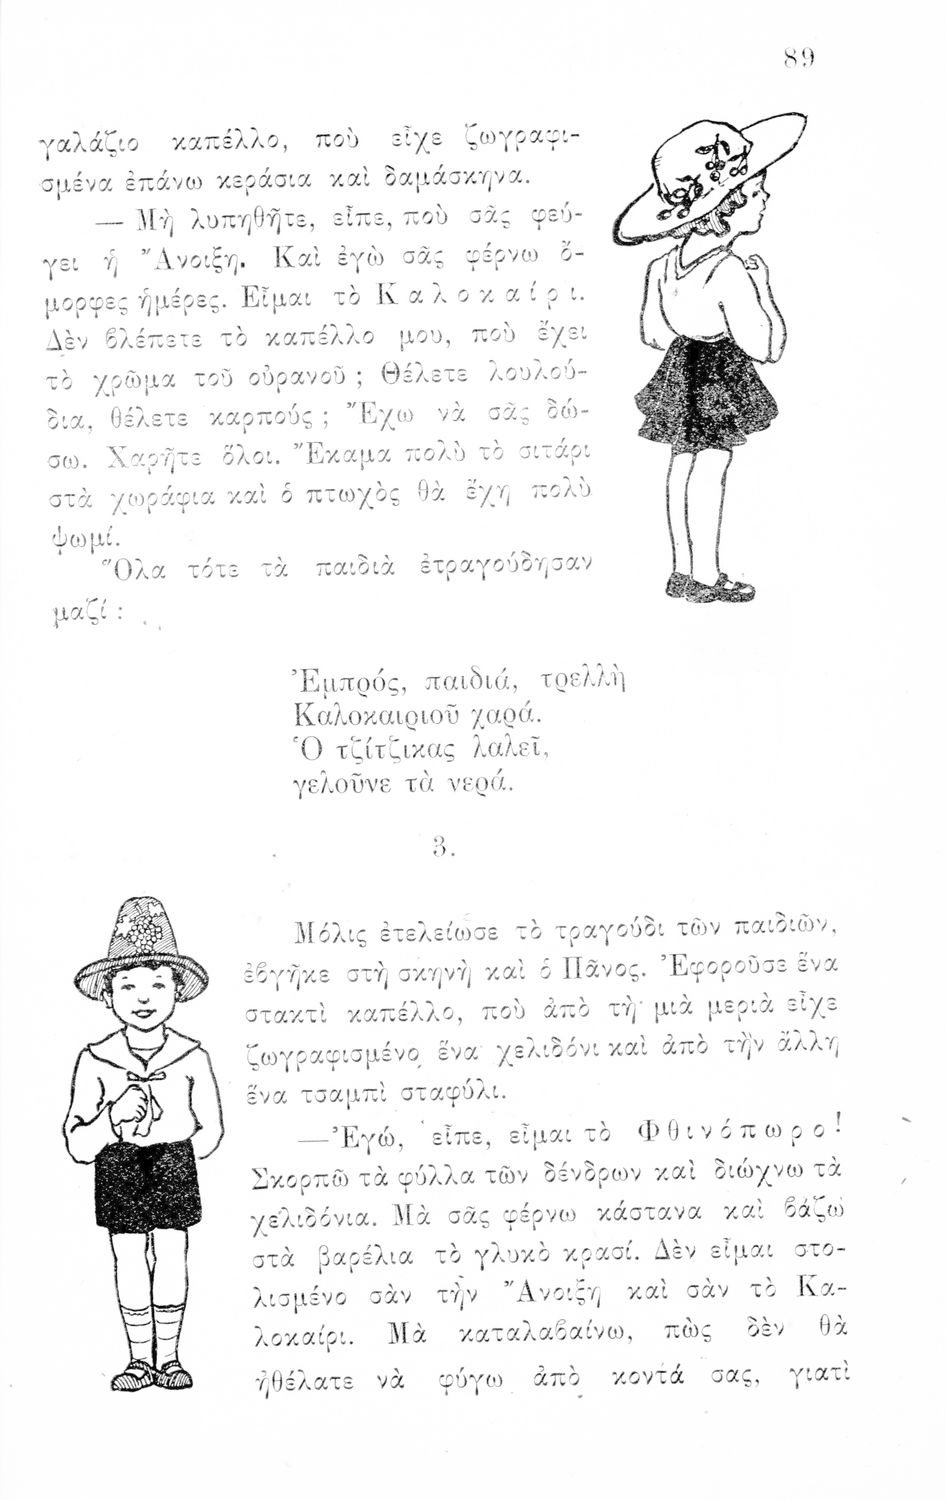 89
γαλάζιο καπέλλο, ποὺ εἶχε ζωγραφι-
σμένα ἐπάνω κεράσια καὶ δαμάσκηνα.
— Μὴ λυπηθῆτε, εἶπε, ποὺ σᾶς φεύ-
γει ἡ Ἄνοιξη. Καὶ ἐγὼ σᾶς φέρνω ὄ-
μορφες ἡμέρες. Εἶμαι τὸ Καλοκαίρι.
Δὲν βλέπετε τὸ καπέλλο μου, ποὺ ἔχει
τὸ χρῶμα τοῦ οὐρανοῦ ; Θέλετε λουλού-
δια, θέλετε καρπούς ; Ἔχω νὰ σᾶς δώ-
σω. Χαρῆτε ὅλοι. Ἔκαμα πολὺ τὸ σιτάρι
στὰ χωράφια καὶ ὁ πτωχὸς θὰ ἔχῃ πολὺ
ψωμί.
Ὅλα τότε τὰ παιδιὰ ἐτραγούδησαν
μαζί :
Ἐμπρός, παιδιά, τρελλὴ
Καλοκαιριοῦ χαρά.
Ὁ τζίτζικας λαλεῖ,
γελοῦνε τὰ νερά.
3.
Μόλις ἐτελείωσε τὸ τραγούδι τῶν παιδιῶν,
ἐβγῆκε στὴ σκηνὴ καὶ ὁ Πᾶνος. Ἐφοροῦσε ἕνα
στακτὶ καπέλλο, ποὺ ἀπὸ τὴ μιὰ μεριὰ εἶχε
ζωγραφισμένο ἕνα χελιδόνι καὶ ἀπὸ τὴν ἄλλη
ἕνα τσαμπὶ σταφύλι.
— Ἐγώ, εἶπε, εἶμαι τὸ Φθινόπωρο!
Σκορπῶ τὰ φύλλα τῶν δένδρων καὶ διώχνω τὰ
χελιδόνια. Μὰ σᾶς φέρνω κάστανα καὶ βάζω
στὰ βαρέλια τὸ γλυκὸ κρασί. Δὲν εἶμαι στο-
λισμένο σὰν τὴν Ἄνοιξη καὶ σὰν τὸ Κα-
λοκαίρι. Μὰ καταλαβαίνω, πὼς δὲν θὰ
ἠθέλατε νὰ φύγω ἀπὸ κοντά σας, γιατὶ